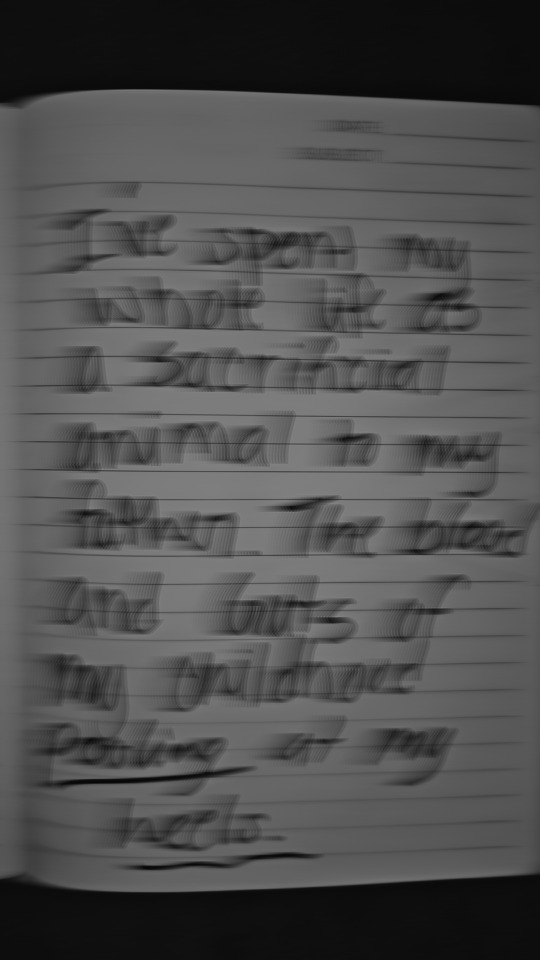 I've spent my
whole life as
a sacrificial
animal to my
father. The blood
and guts of
my childhood
pooling at my
heels.